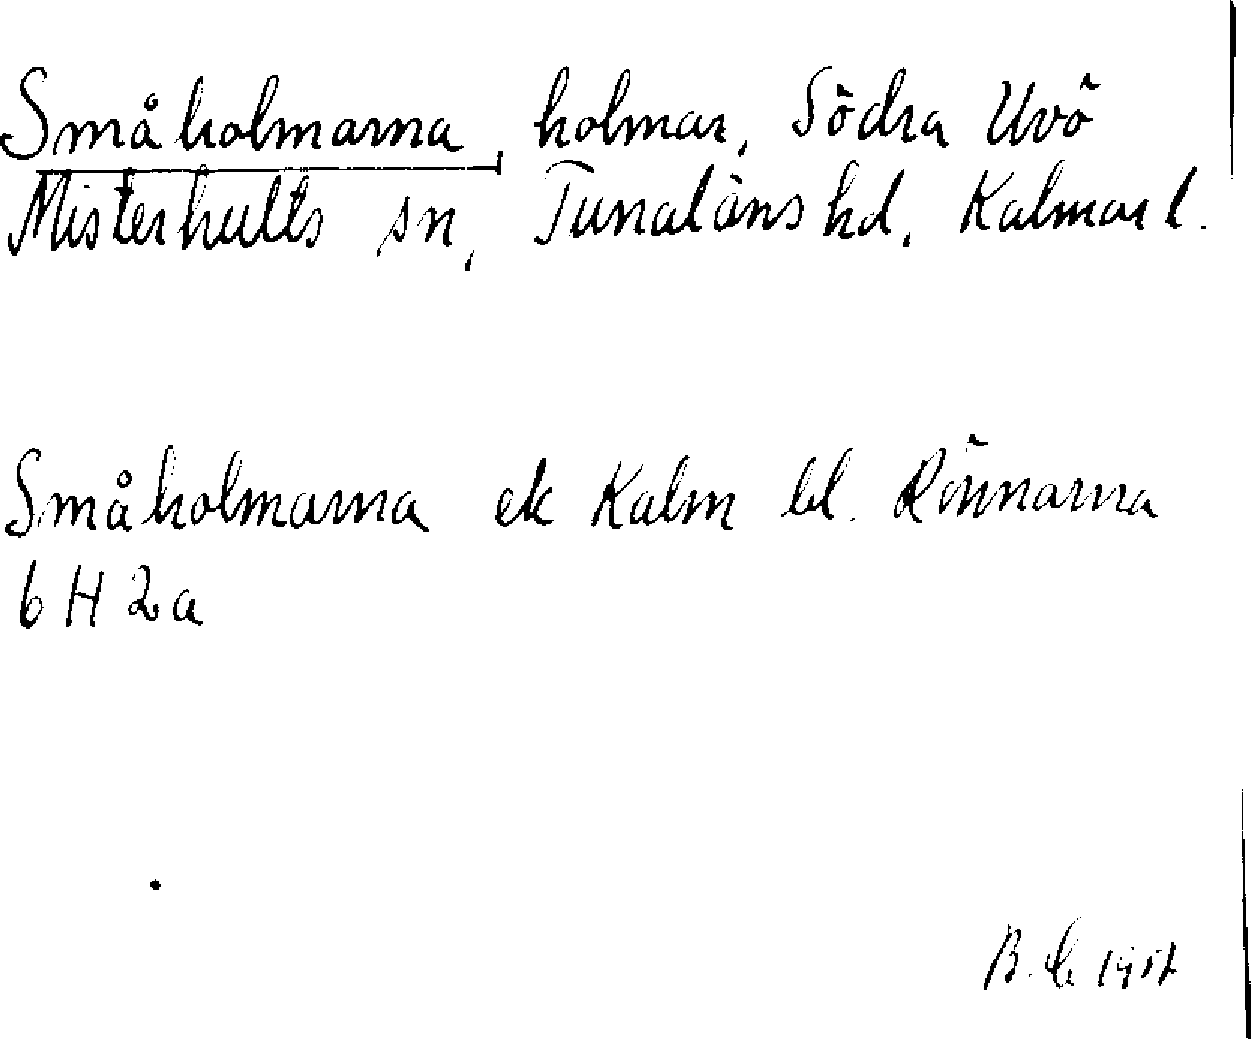 Småholmarna, holmar, Södra Uvö
Misterhults sn, Tunaläns hd, Kalmar l.
Småholmarna ek Kalm bl. Rönnarna
6 H 2a